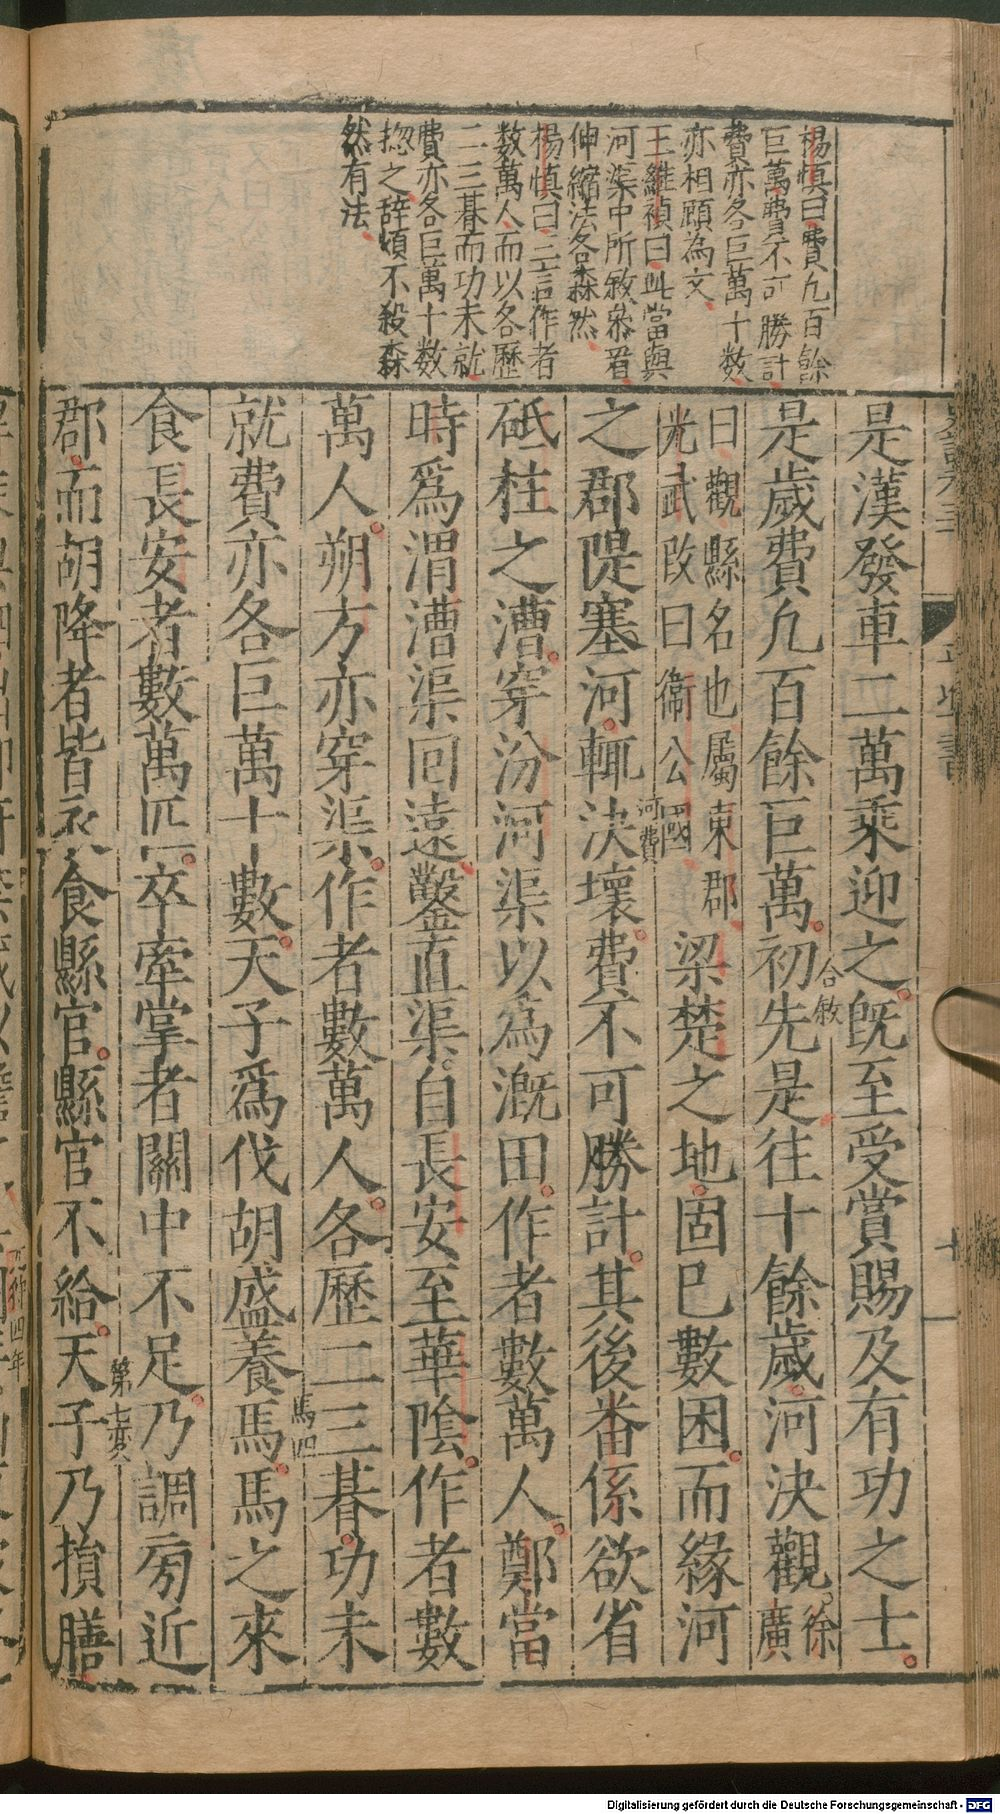 楊慎曰費凢百餘
巨萬費不可勝計
費亦各巨萬十數
亦相顧為文
王維禎曰此當與
河渠中所敘叅看
伸縮法各森然
楊慎曰三言作者
数萬人而以各歷
二三朞而功未就
費亦各巨萬十数
揔之辞煩不殺森
然有法
是漢發車二萬乘迎之旣至受賞賜及有功之士
合敘
是歲費凢百餘巨萬初先是往十餘歲河決觀徐廣
曰觀縣名也屬東郡
光武改曰衞公國
梁楚之地固已數困而緣河
河費
之郡隄塞河輒決壞費不可勝計其後番係欲省
砥柱之漕穿汾河渠以爲漑田作者數萬人鄭當
時爲渭漕渠囘遠鑿直渠自長安至華陰作者數
萬人朔方亦穿渠作者數萬人各歷二三朞功未
馬四
就費亦各巨萬十數天子爲伐胡盛養馬馬之來
食長安者數萬匹卒牽掌者關中不足乃調旁近
第七変
郡而胡降者皆衣食縣官縣官不給天子乃損膳
元狩四年
Digitalisierung gefördert durch die Deutsche Forschungsgemeinschaft - DFG